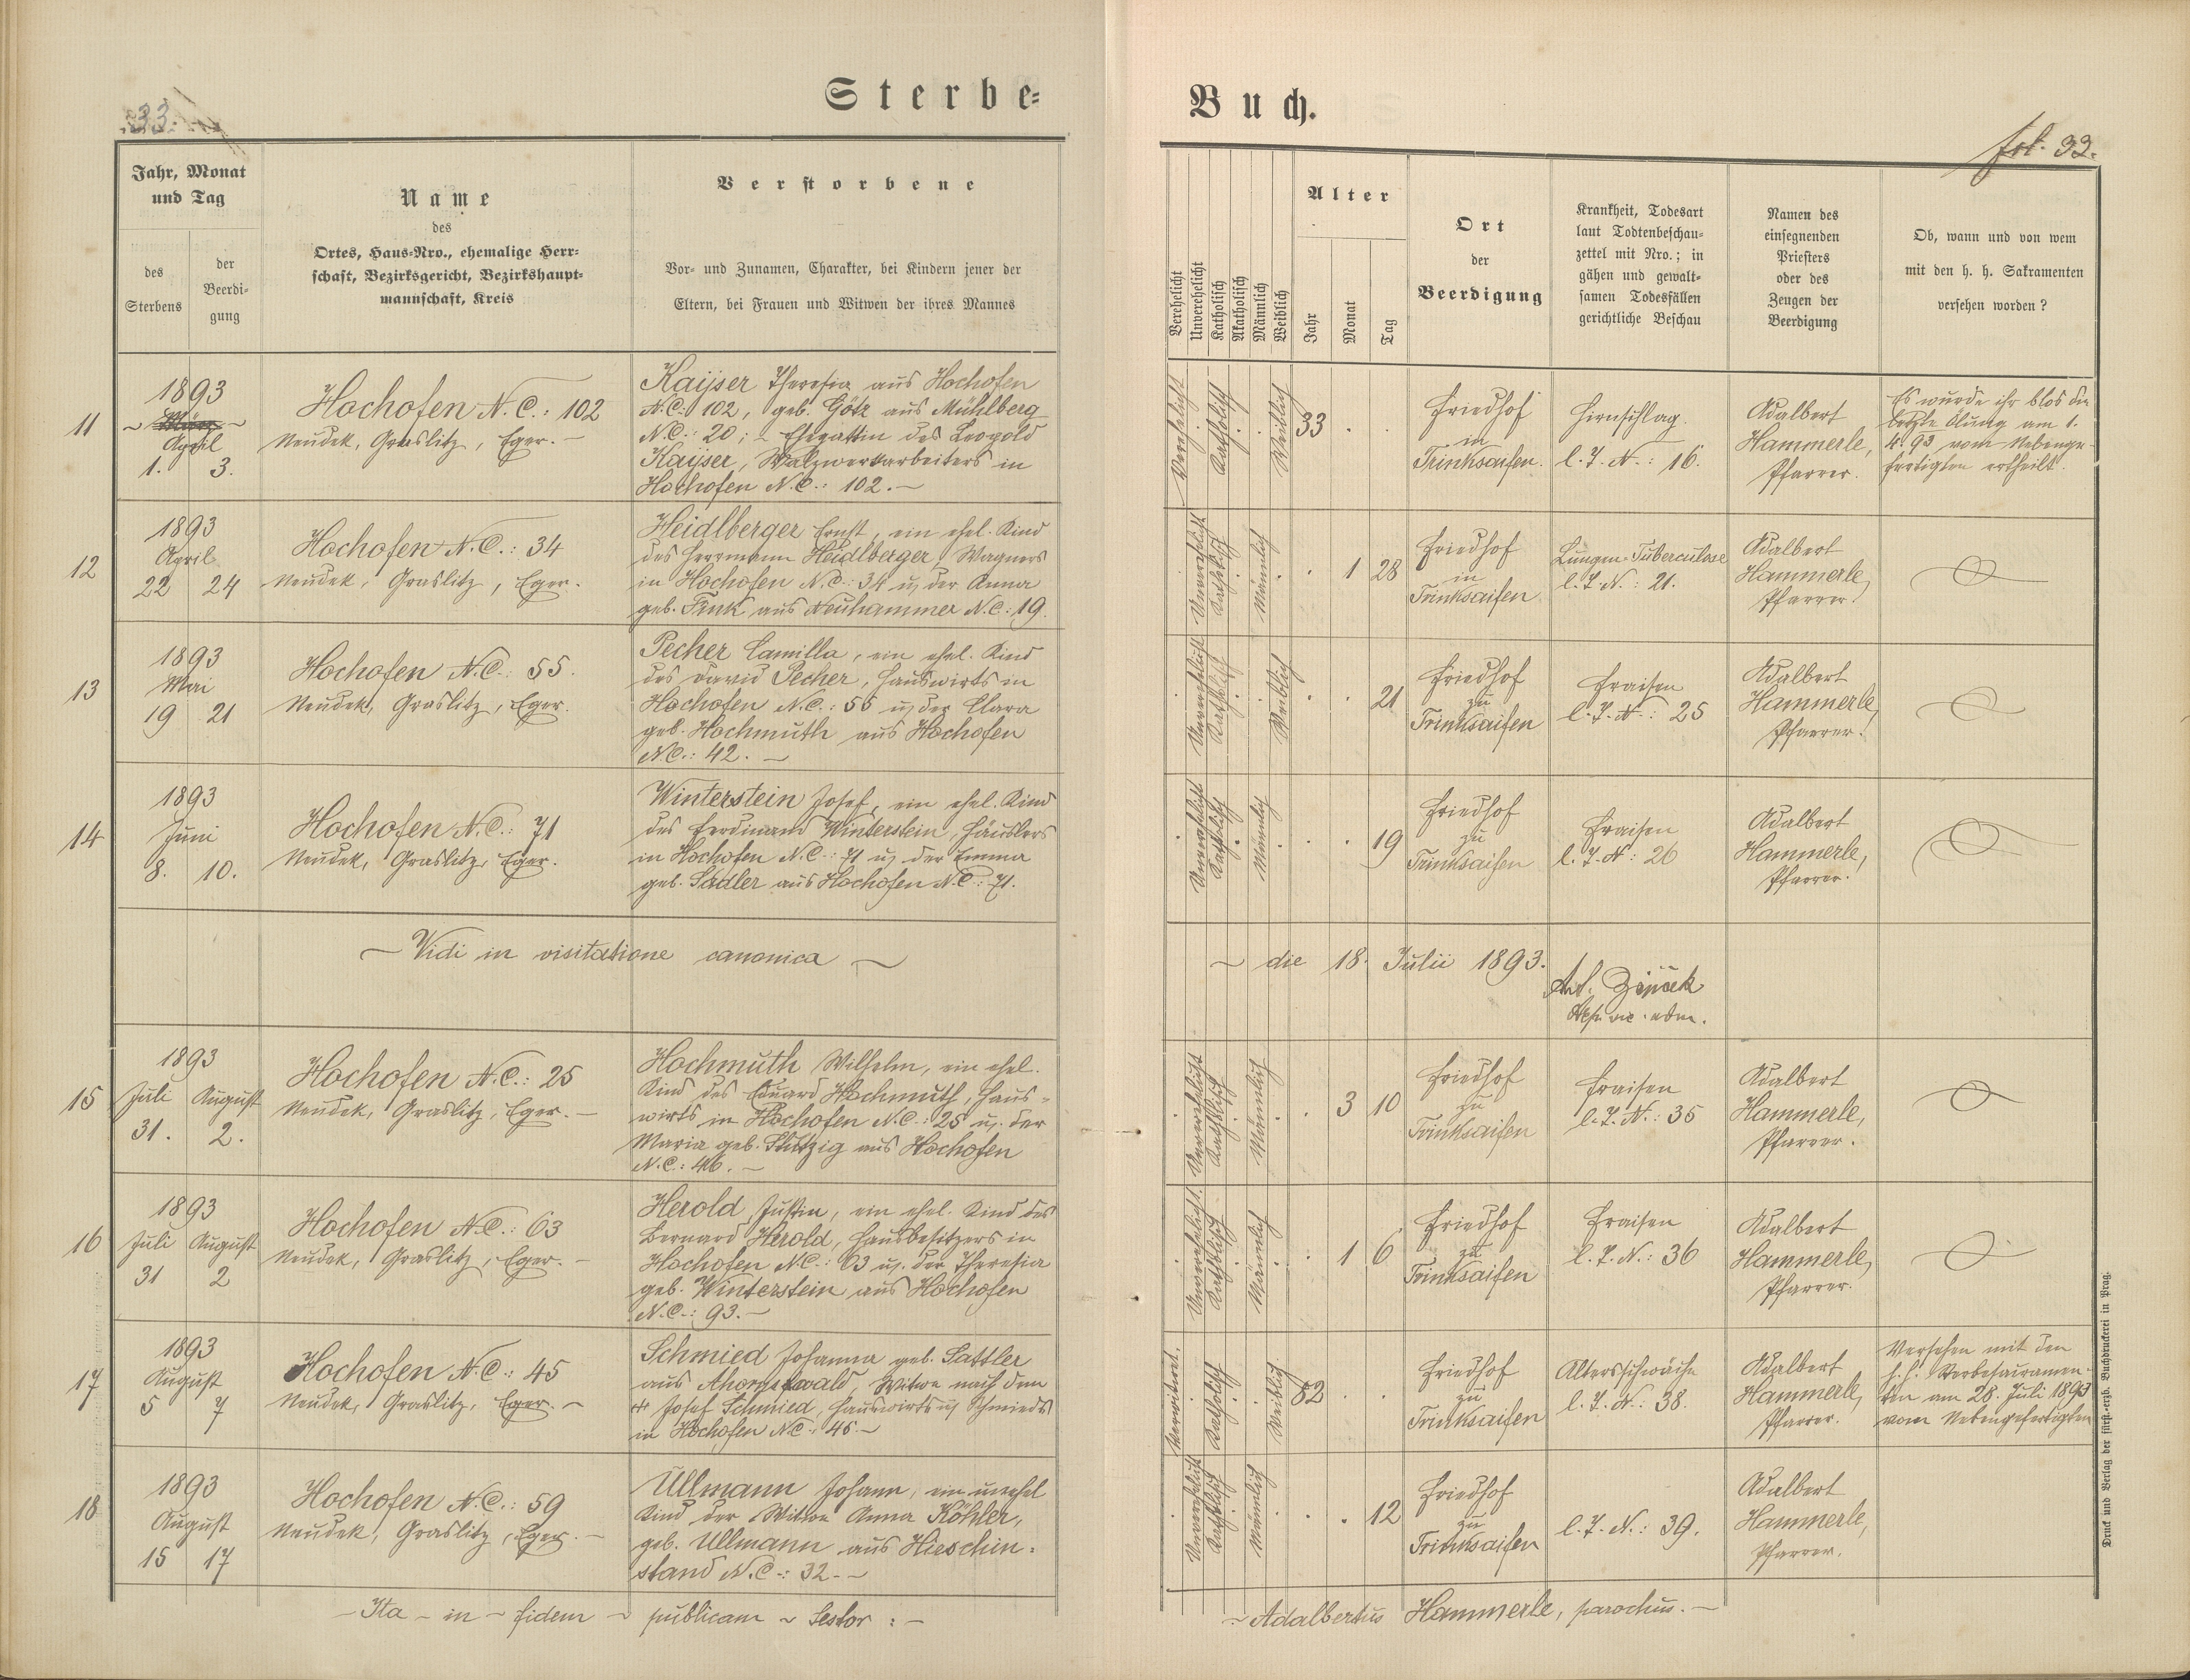 Sterbe=
Buch.
33.
fol. 33.
Jahr, Monat
und Tag
des
Sterbens
der
Beerdi-
gung
Name
des
Ortes, Haus-Nro., ehemalige Herr-
schaft, Bezirksgericht, Bezirkshaupt-
mannschaft, Kreis
Verstorbene
Vor- und Zunamen, Charakter, bei Kindern jener der
Eltern, bei Frauen und Witwen der ihres Mannes
Verehelicht
Unverehelicht
Katholisch
Akatholisch
Männlich
Weiblich
Alter
Jahr
Monat
Tag
Ort
der
Beerdigung
Krankheit, Todesart
laut Todtenbeschau-
zettel mit Nro.; in
gähen und gewalt-
samen Todesfällen
gerichtliche Beschau
Namen des
einsegnenden
Priesters
oder des
Zeugen der
Beerdigung
Ob, wann und von wem
mit den h. h. Sakramenten
versehen worden?
11
1893
~ März ~
April
1. 3.
Hochofen N.C.: 102
Neudek, Graslitz, Eger. –
Kaijser Theresia aus Hochofen
N.C.: 102, geb. Götz aus Mühlberg
N.C.: 20; – Ehegattin des Leopold
Kaijser, Walzwerkarbeiters in
Hochofen N.C.: 102. –
Verehelicht
Katholisch
Weiblich
33 . .
Friedhof
in
Trinksaifen.
Hirnschlag.
l. T. N.: 16.
Adalbert
Hammerle,
Pfarrer.
Es wurde ihr blos die
letzte Ölung am 1.
4. 93 vom Nebenge-
fertigten ertheilt.
12
1893
April
22 24
Hochofen N.C.: 34
Neudek, Graslitz, Eger.
Heidlberger Ernst, ein ehel. Kind
des Herrmann Heidlberger, Wagners
in Hochofen N.C.: 34 u. der Anna
geb. Fink aus Neuhammer N.C.: 19.
Unverehelicht
Katholisch
Männlich
. 1 28
Friedhof
in
Trinksaifen
Lungen-Tuberculose
l. T. N.: 21.
Adalbert
Hammerle,
Pfarrer.
13
1893
Mai
19 21
Hochofen N.C.: 55.
Neudek, Graslitz, Eger.
Pecher Camilla, ein ehel. Kind
des David Pecher, Hauswirts in
Hochofen N.C.: 55 u. der Clara
geb. Hochmuth aus Hochofen
N.C.: 42. –
Unverehelicht
Katholisch
Weiblich
. . 21
Friedhof
zu
Trinksaifen
Fraisen
l. T. N.: 25
Adalbert
Hammerle,
Pfarrer.
14
1893
Juni
8. 10.
Hochofen N.C.: 71
Neudek, Graslitz, Eger.
Winterstein Josef, ein ehel. Kind
des Ferdinand Winterstein, Häuslers
in Hochofen N.C.: 71 u. der Emma
geb. Sadler aus Hochofen N.C.: 71.
Unverehelicht
Katholisch
Männlich
. . 19
Friedhof
zu
Trinksaifen
Fraisen
l. T. N.: 26
Adalbert
Hammerle,
Pfarrer.
~ Vidi in visitatione canonica ~
~ die 18. Julii 1893.
15
1893
Juli August
31. 2.
Hochofen N.C.: 25
Neudek, Graslitz, Eger. –
Hochmuth Wilhelm, ein ehel.
Kind des Eduard Hochmuth, Haus-
wirts in Hochofen N.C.: 25 u. der
Maria geb. Stützig aus Hochofen
N.C.: 46. –
Unverehelicht
Katholisch
Männlich
. 3 10
Friedhof
zu
Trinksaifen
Fraisen
l. T. N.: 35
Adalbert
Hammerle,
Pfarrer.
16
1893
Juli August
31 2
Hochofen N.C.: 63
Neudek, Graslitz, Eger. –
Herold Justin, ein ehel. Kind des
Bernard Herold, Hausbesitzers in
Hochofen N.C.: 63 u. der Theresia
geb. Winterstein aus Hochofen
N.C.: 93. –
Unverehelicht.
Katholisch
Männlich
. 1 6
Friedhof
zu
Trinksaifen
Fraisen
l. T. N.: 36
Adalbert
Hammerle,
Pfarrer.
17
1893
August
5 7
Hochofen N.C.: 45
Neudek, Graslitz, Eger. –
Schmied Johanna geb. Sattler
aus Ahornswald, Witwe nach dem
+ Josef Schmied, Hauswirts u. Schmieds
in Hochofen N.C.: 45. –
Verwitwet.
Katholisch
Weiblich
82 . .
Friedhof
zu
Trinksaifen
Altersschwäche
l. T. N.: 38.
Adalbert
Hammerle,
Pfarrer.
Versehen mit den
h. h. Sterbesacramen-
ten am 28. Juli 1893
vom Nebengefertigten
18
1893
August
15 17
Hochofen N.C.: 59
Neudek, Graslitz, Eger. –
Ullmann Johann, ein unehel
Kind der Witwe Anna Köhler,
geb. Ullmann aus Hieschin-
stand N.C.: 32. –
Unverehelicht
Katholisch
Männlich
. . 12
Friedhof
zu
Trinksaifen
l. T. N.: 39.
Adalbert
Hammerle,
Pfarrer.
– Ita – in – fidem ~ publicam ~ testor: –
~ Adalbertus Hammerle, parochus. –
Druck und Verlag der fürst.-erzb. Buchdruckerei in Prag.